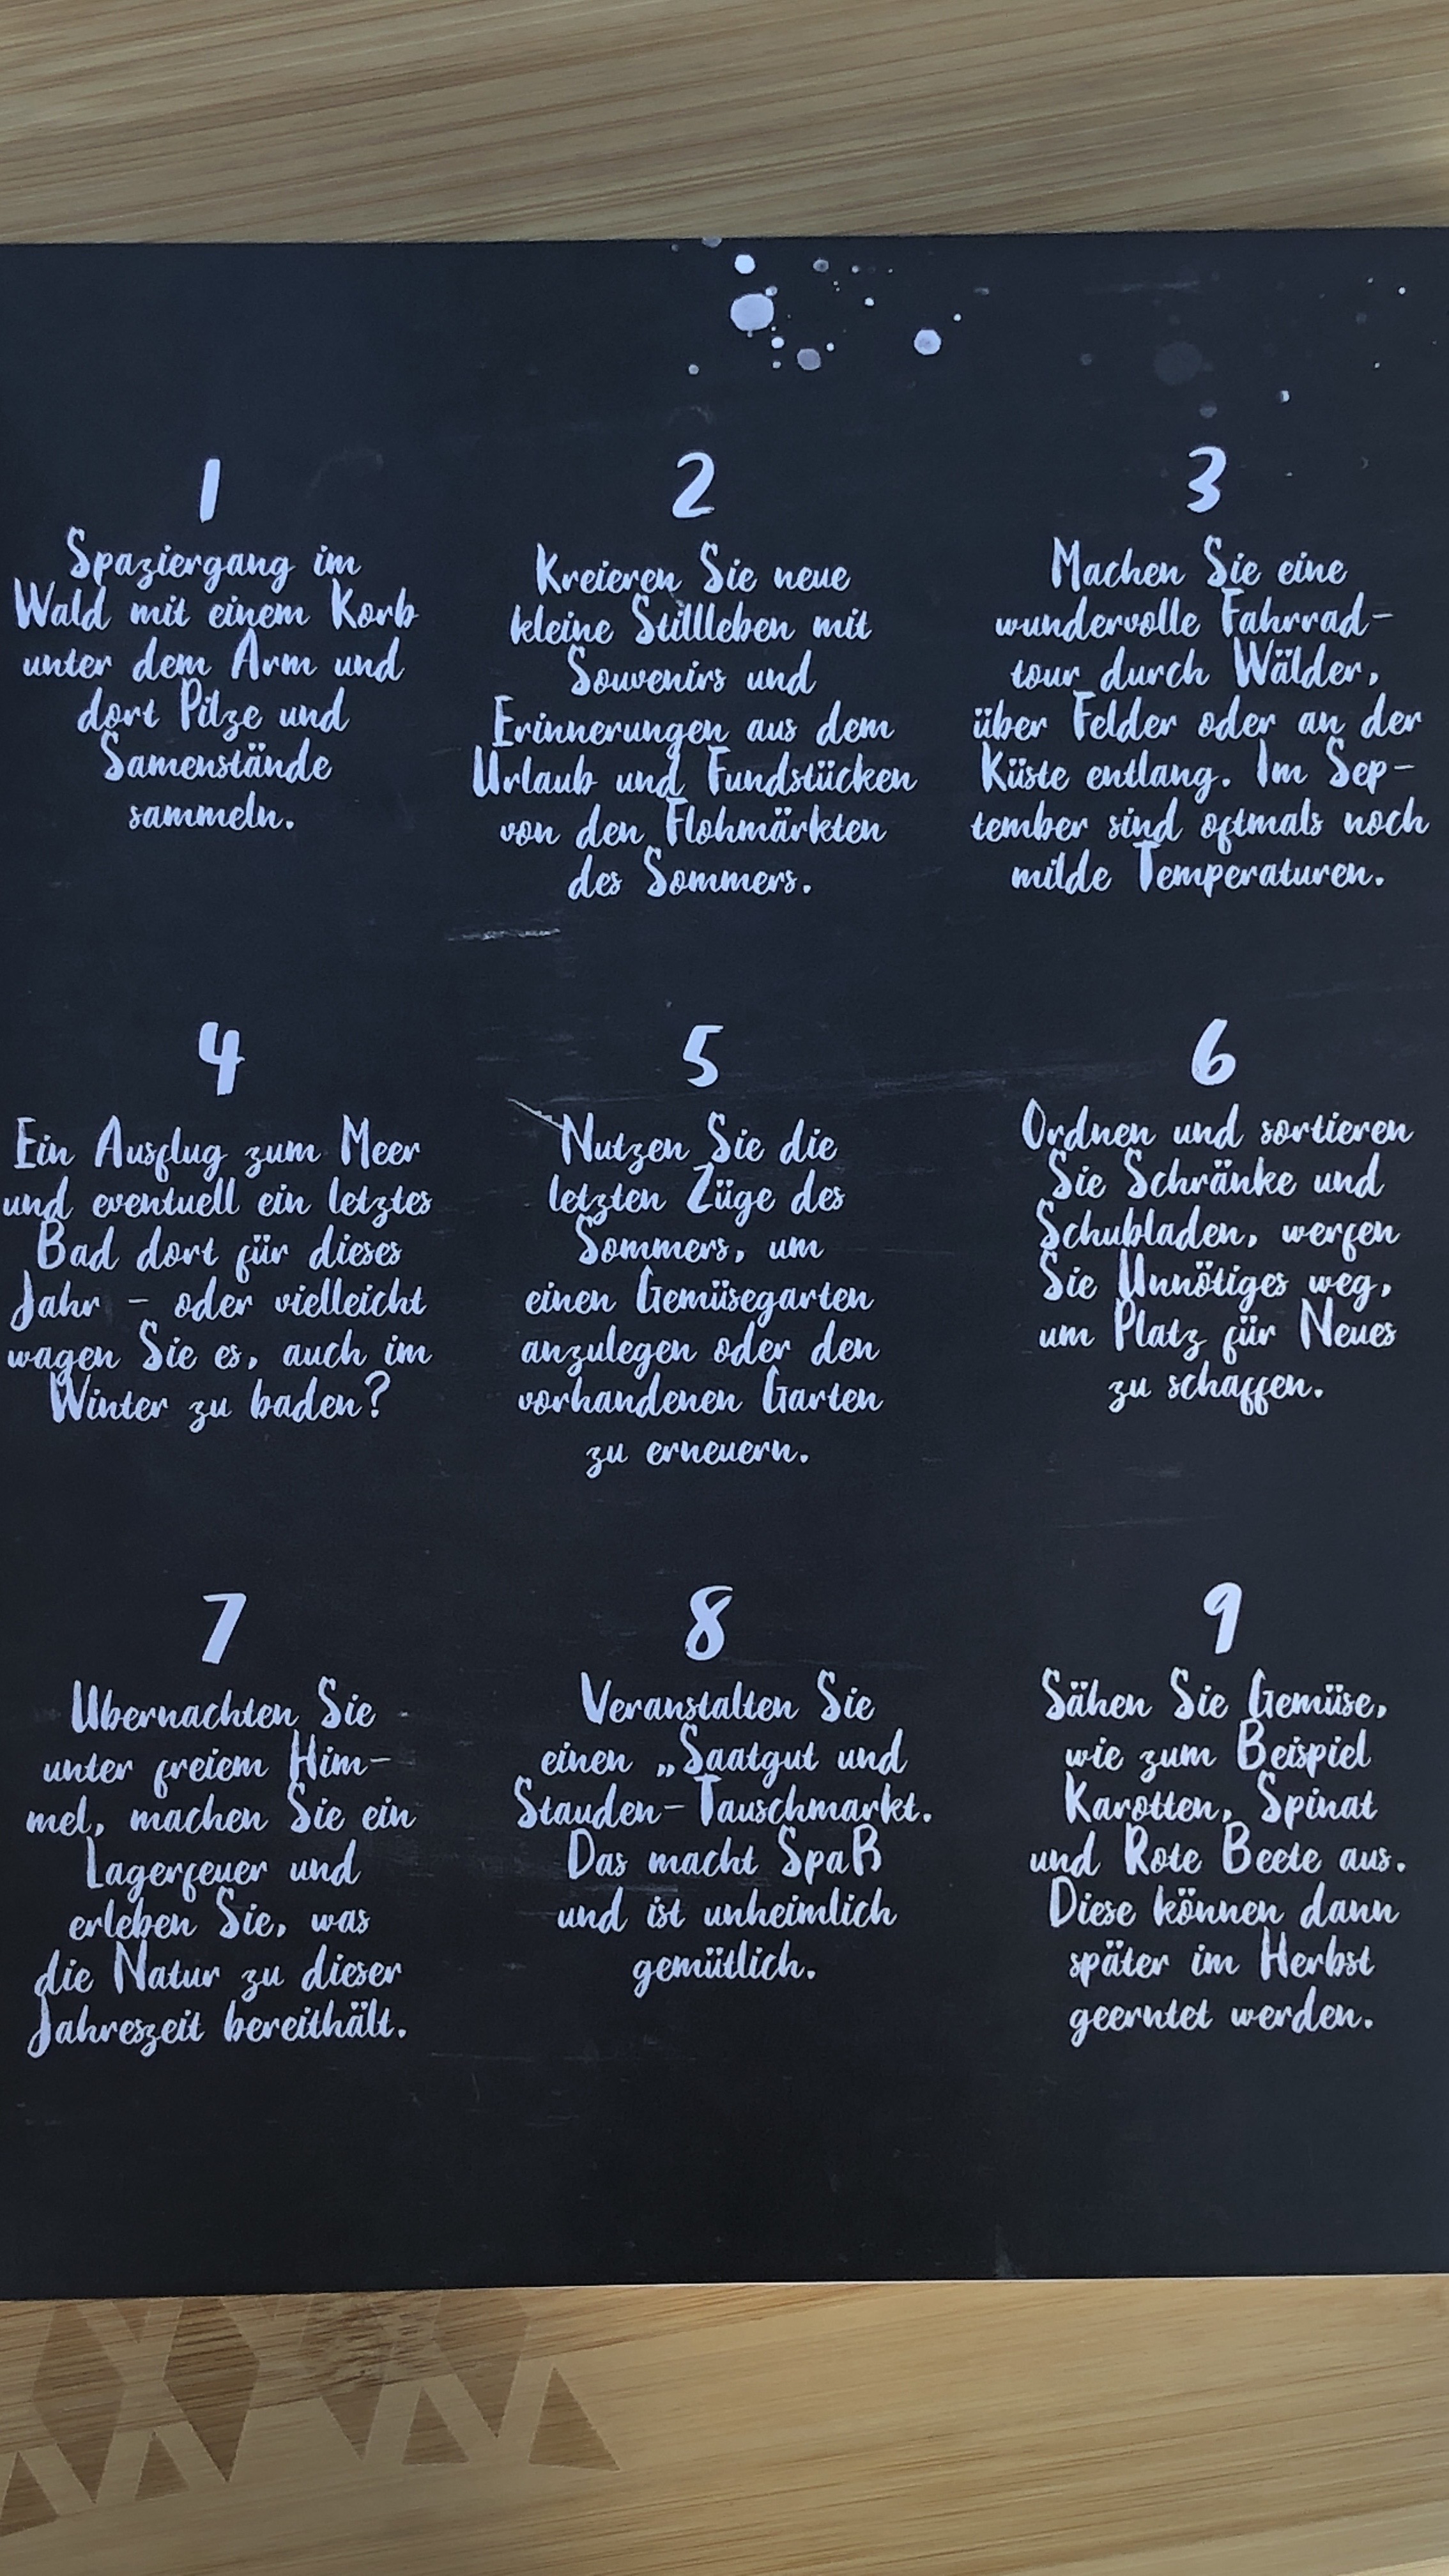 1
Spaziergang im
Wald mit einem Korb
unter dem Arm und
dort Pilze und
Samenstände
sammeln.
2
Kreieren Sie neue
kleine Stillleben mit
Souvenirs und
Erinnerungen aus dem
Urlaub und Fundstücken
von den Flohmärkten
des Sommers.
3
Machen Sie eine
wundervolle Fahrrad-
tour durch Wälder,
über Felder oder an der
Küste entlang. Im Sep-
tember sind oftmals noch
milde Temperaturen.
4
Ein Ausflug zum Meer
und eventuell ein letztes
Bad dort für dieses
Jahr - oder vielleicht
wagen Sie es, auch im
Winter zu baden?
5
Nutzen Sie die
letzten Züge des
Sommers, um
einen Gemüsegarten
anzulegen oder den
vorhandenen Garten
zu erneuern.
6
Ordnen und sortieren
Sie Schränke und
Schubladen, werfen
Sie Unnötiges weg,
um Platz für Neues
zu schaffen.
7
Ubernachten Sie
unter freiem Him-
mel, machen Sie ein
Lagerfeuer und
erleben Sie, was
die Natur zu dieser
Jahreszeit bereithält.
8
Veranstalten Sie
einen „Saatgut und
Stauden-Tauschmarkt.
Das macht Spaß
und ist unheimlich
gemütlich.
9
Sähen Sie Gemüse,
wie zum Beispiel
Karotten, Spinat
und Rote Beete aus.
Diese können dann
später im Herbst
geerntet werden.